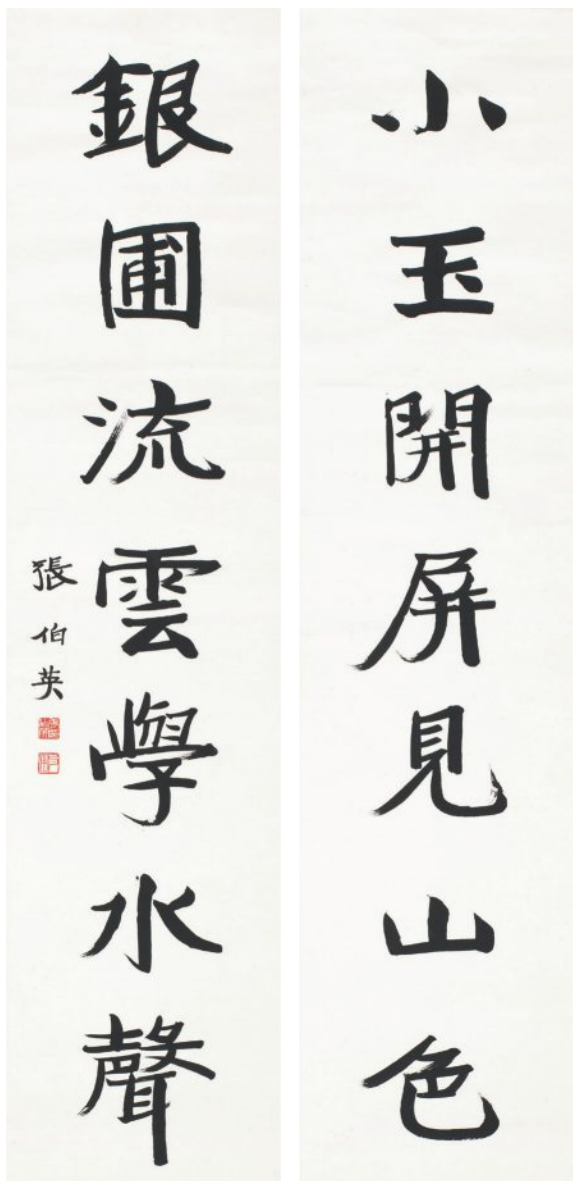 小玉開屏見山色
銀圃流雲學水聲
張伯英